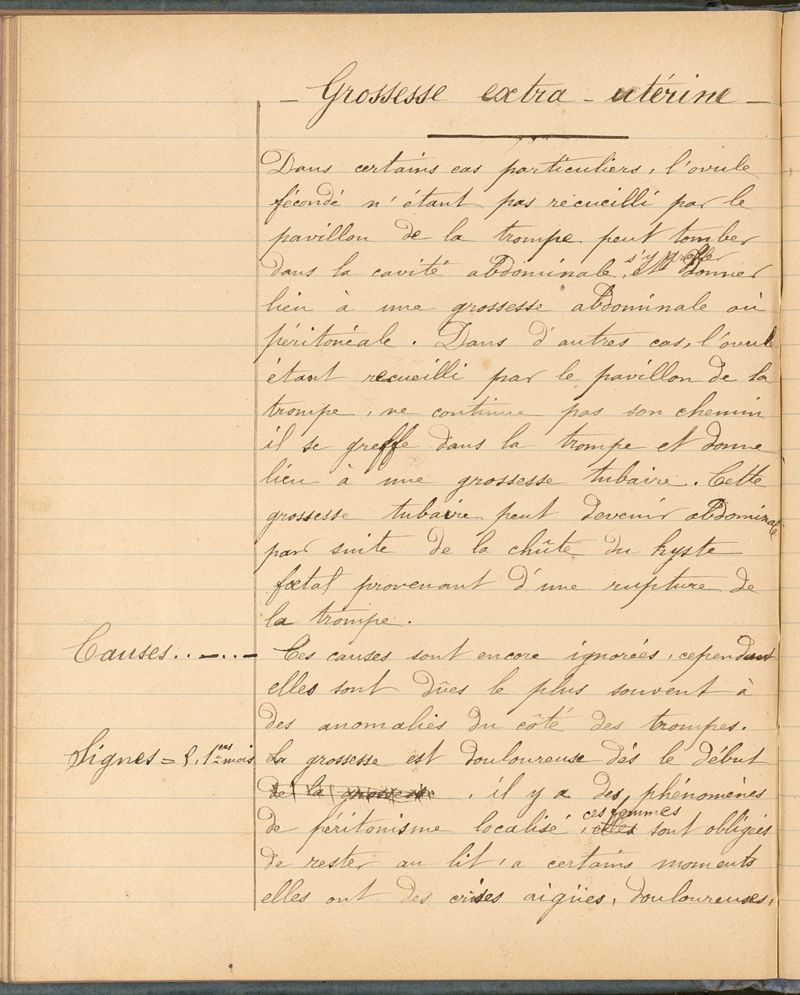 — Grossesse extra-utérine —
Dans certains cas particuliers, l'ovule
fécondé n'étant pas recueilli par le
pavillon de la trompe peut tomber
s'y greffer
dans la cavité abdominale, et donner
lieu à une grossesse abdominale ou
péritonéale. Dans d'autres cas, l'ovule
étant recueilli par le pavillon de la
trompe, ne continue pas son chemin
il se greffe dans la trompe et donne
lieu à une grossesse tubaire. Cette
grossesse tubaire peut devenir abdominale
par suite de la chûte du kyste
fœtal provenant d'une rupture de
la trompe.
Causes..–..– Ces causes sont encore ignorées, cependant
elles sont dûes le plus souvent à
des anomalies du côté des trompes.
Signes = 1ers mois La grossesse est douloureuse dès le début
de la grossesse, il y a des phénomènes
ces femmes
de péritonisme localisé, elles sont obligées
de rester au lit, a certains moments
elles ont des crises aigües, douloureuses,